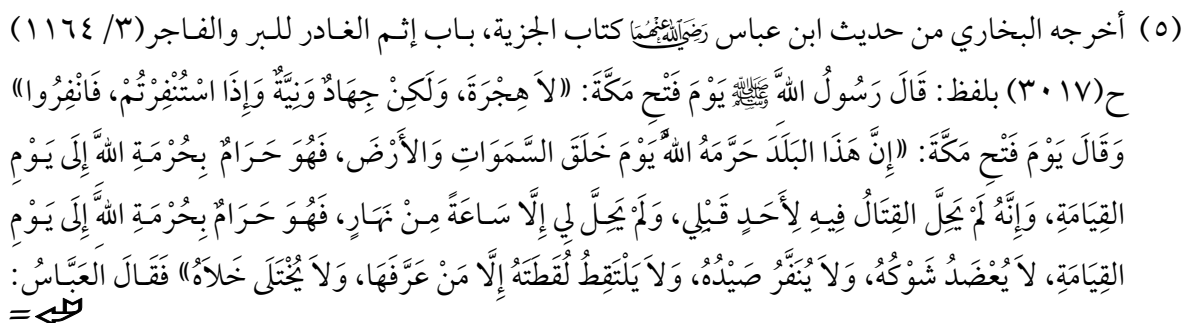 (٥) أخرجه البخاري من حديث ابن عباس رَضِيَ اللَّهُ عَنْهُمَا كتاب الجزية، باب إثم الغادر للبر والفاجر (٣/ ١١٦٤)
ح(٣٠١٧) بلفظ: قَالَ رَسُولُ اللَّهِ ﷺ يَوْمَ فَتْحِ مَكَّةَ: «لاَ هِجْرَةَ، وَلَكِنْ جِهَادٌ وَنِيَّةٌ وَإِذَا اسْتُنْفِرْتُمْ، فَانْفِرُوا»
وَقَالَ يَوْمَ فَتْحِ مَكَّةَ: «إِنَّ هَذَا البَلَدَ حَرَّمَهُ اللهُ يَوْمَ خَلَقَ السَّمَوَاتِ وَالأَرْضَ، فَهُوَ حَرَامٌ بِحُرْمَةِ اللهِ إِلَى يَوْمِ
القِيَامَةِ، وَإِنَّهُ لَمْ يَحِلَّ القِتَالُ فِيهِ لِأَحَدٍ قَبْلِي، وَلَمْ يَحِلَّ لِي إِلَّا سَاعَةً مِنْ نَهَارٍ، فَهُوَ حَرَامٌ بِحُرْمَةِ اللهِ إِلَى يَوْمِ
القِيَامَةِ، لاَ يُعْضَدُ شَوْكُهُ، وَلاَ يُنَفَّرُ صَيْدُهُ، وَلاَ يَلْتَقِطُ لُقَطَتَهُ إِلَّا مَنْ عَرَّفَهَا، وَلاَ يُخْتَلَى خَلاَهُ» فَقَالَ العَبَّاسُ:
=